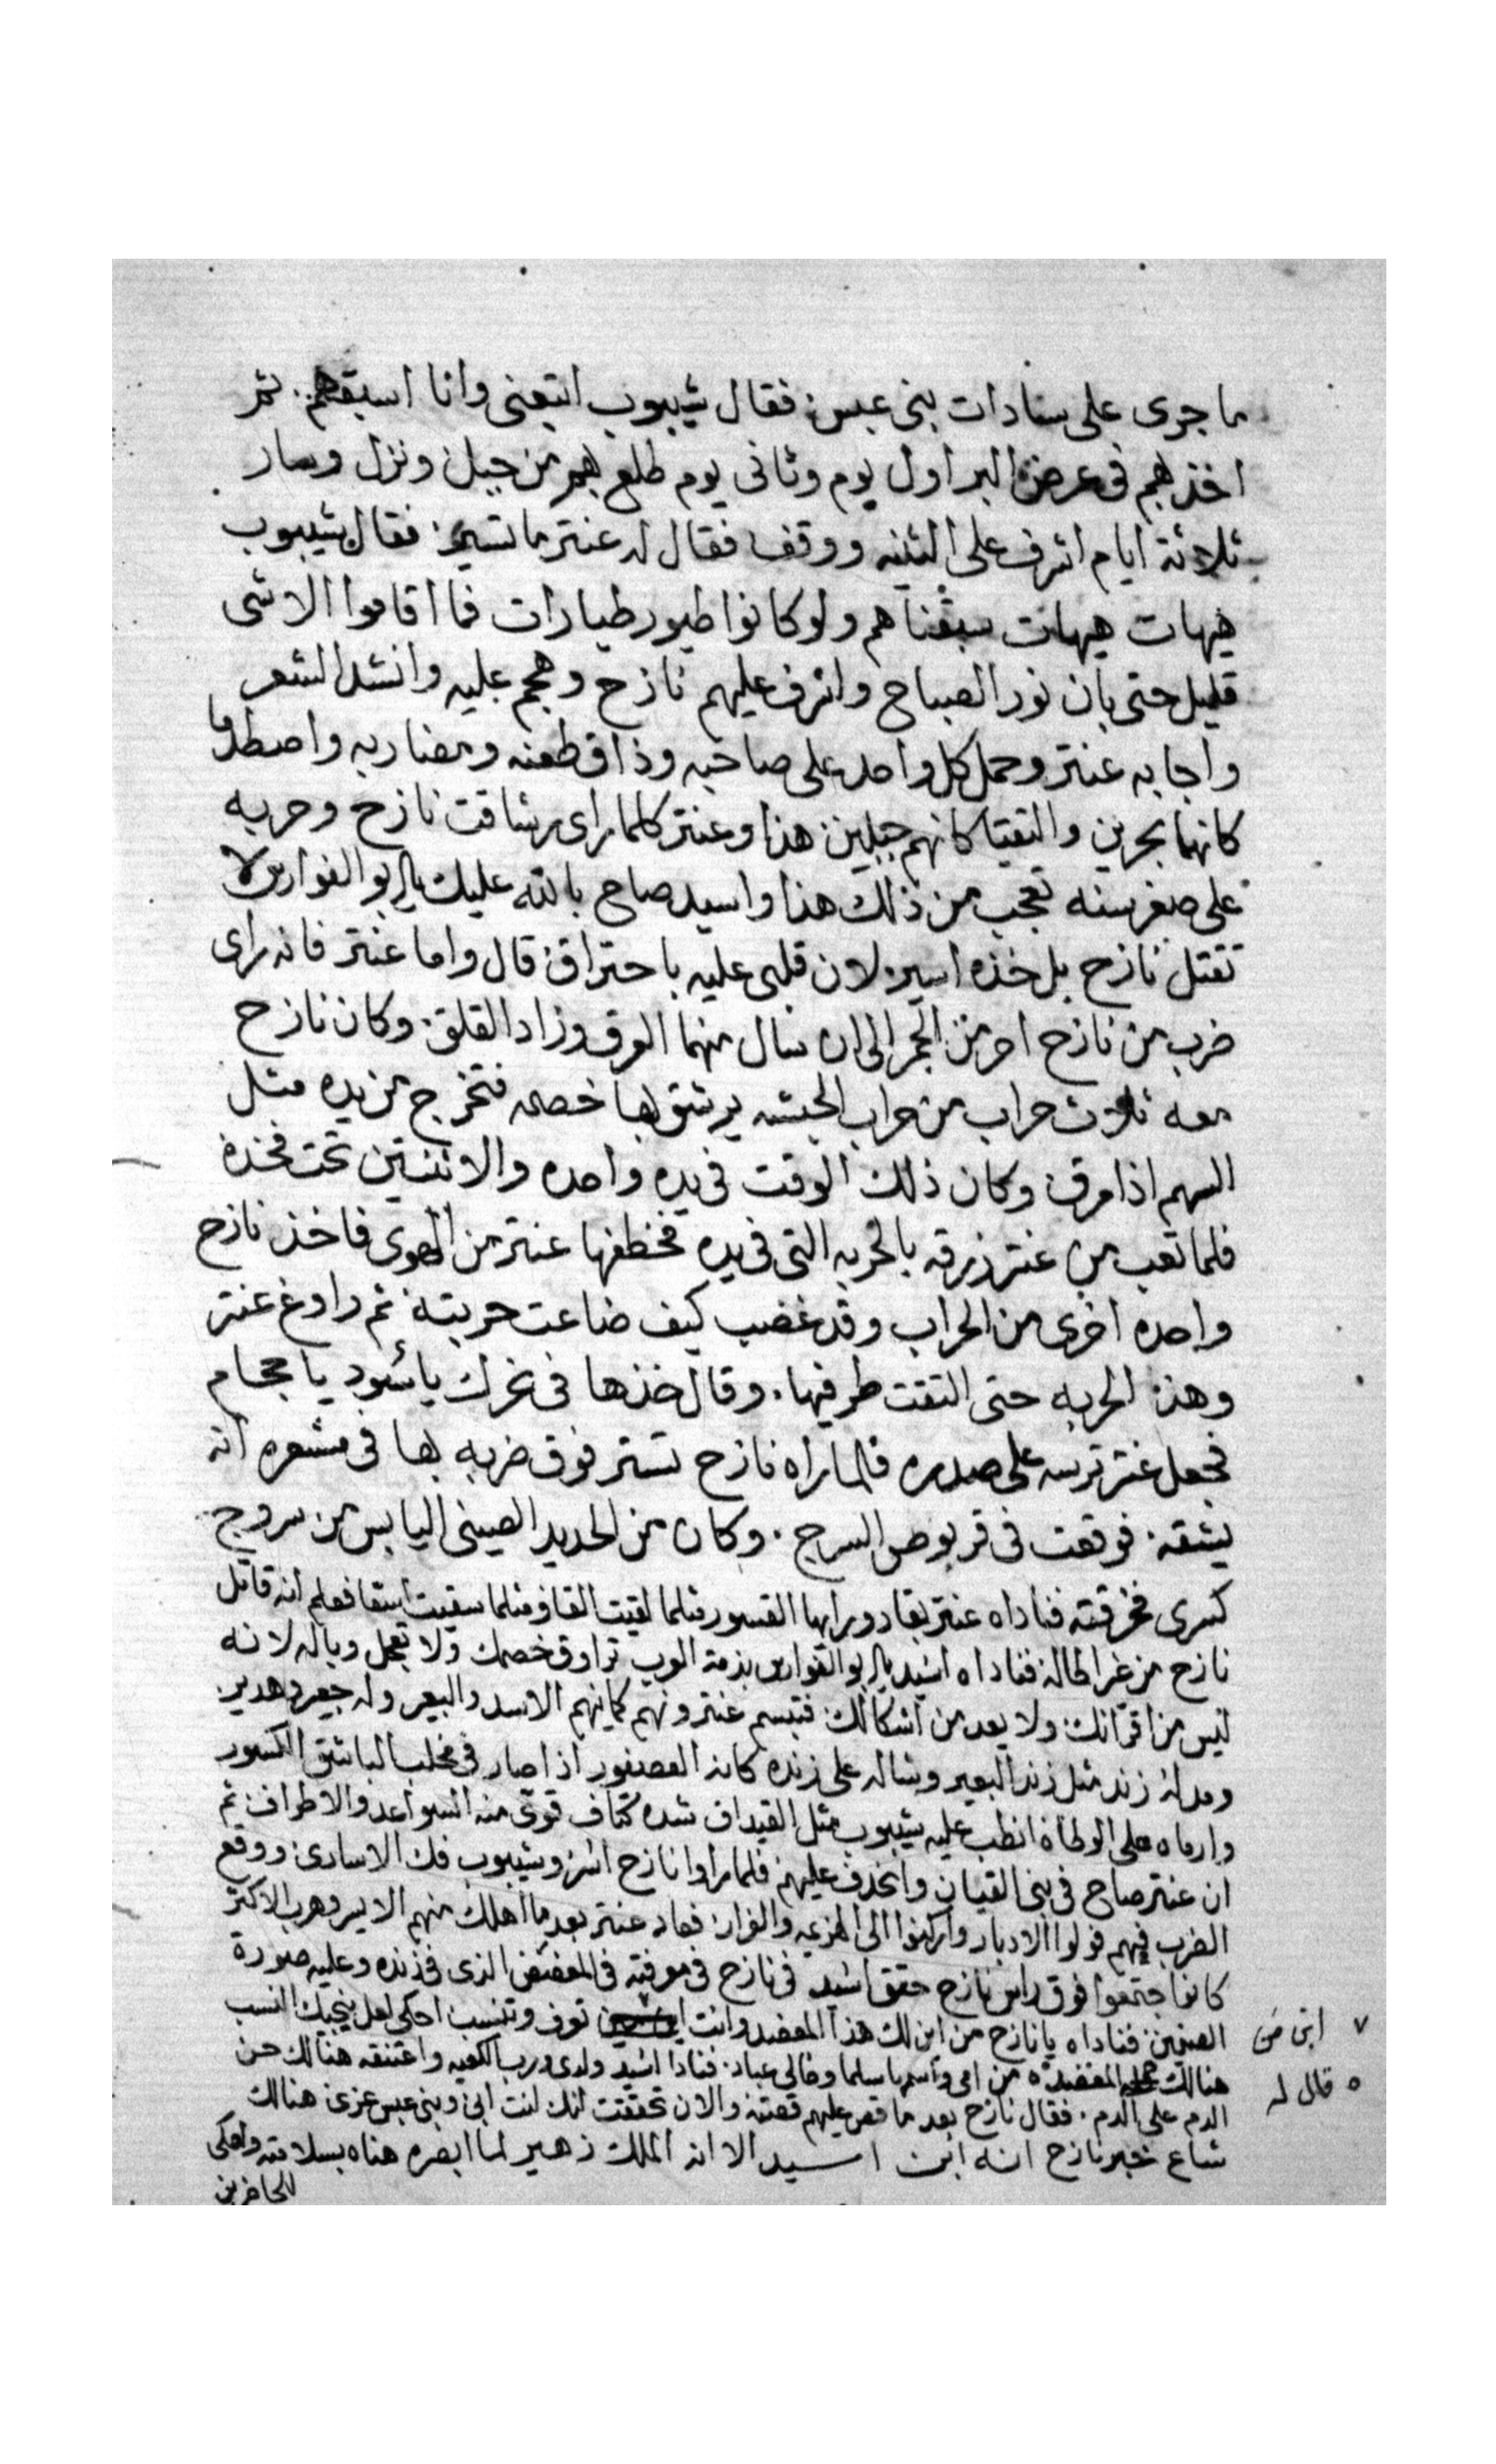 ما جرى على سادات بنى عبس: فقال شيبوب اتبعنى وانا اسبقهم. ثم
اخذهم فى عرض البر اول يوم وثانى يوم طلع بهم من جبل ونزل وسار
ثلاثة ايام اشرف على الثنيه ووقف فقال له عنتر ما تسير: فقال شيبوب
هيهات هيهات سبقناهم ولو كانوا طيور طيارات فما اقاموا الا شى
قليل حتى بان نور الصباح واشرف عليهم نازح وهجم عليه وانشد الشعر
واجابه عنتر وحمل كل واحد على صاحبه وذاق طعنه ومضاربه واصطدما
كانهما بحرين والتقيا كانهم جبلين: هذا وعنتر كلما راى رشاقت نازح وحربه
على صغر سنه تعجب من ذلك هذا واسيد صاح بالله عليك يا ابو الفوارس لا
تقتل نازح بل خذه اسير: لان قلبى عليه باحتراق: قال واما عنتر فانه راى
ضرب من نازح احر من الجمر الى ان سال منهما العرق وزاد القلق. وكان نازح
معه ثلاث حراب من حراب الحبشه يرشق بها خصمه فتخرج من يده مثل
السهم اذا مرق: وكان ذلك الوقت فى يده واحده والاثنتين تحت فخذه
فلما تعب من عنتر زرقه بالحربه التى فى يده فخطفها عنتر من الهوى فاخذ نازح
واحده اخرى من الحراب وقد غضب كيف ضاعت حربته: ثم راوغ عنتر
وهذ الحربه حتى التقت طرفيها. وقال خذها فى نحرك ياسود يا حجام
فجعل عنتر ترسه على صدره فلما راه نازح تستر فوق ضربه بها فى مشعره انه
يشقه. فوقعت فى قربوص السرج. وكان من الحديد الصينى اليابس من سروج
كسرى فخرقته فناداه عنتر القسور فلما لقيت سقيت فعلم انه قاتل
نازح من غير اطاله: فناداه اسيد يا ابو الفوارس بذمة العرب ترا وق خصمك ولا تعجل وباله لانه
ليس من اقرانك: ولا يعد من اشكالك: فتبسم عنتر ونهم كما ينهم الاسد والبعير وله جعير وهدير:
ومد له زند مثل زند البعير وشاله على زنده كانه العصفور اذا صار فى مخلب الباشق الكسور
وارماه على الوطاة انطب عليه شيبوب مثل شده كتاف قوى منه السواعد والاطراف: ثم
ان عنتر صاح فى بنى القيان وانحذف عليهم: فلما راوا نازح اسر: وشيبوب فك الاسارى: ووقع
الضرب فيهم فولوا الادبار واركنوا الى الهزيمه والفرار: فعاد عنتر بعد ما اهلك منهم الايسر وهرب الاكثر
كانوا جتمعوا فوق راس نازح حقق اسيد فى نازح فى معرفته فى المعضد الذى فى زنده وعليه صورة
الصنمين: فناداه يا نازح من اين لك هذا المعضد وانت تعرف وتنسب احكى لعل ينجيك النسب
هنالك المعضد من امى واسمها سلما وخالى عباد: فنادا اسيد ولدى ورب الكعبه واعتنقه هنالك حن
الدم على الدم. فقال نازح بعد ما قص عليهم قصته: والان تحققت انك انت ابى وبنى عبس عزى: هنالك
شاع خبر نازح انه ابن اسيد الا ان الملك زهير لما ابصره هناه بسلامته واحكى
للحاضرين
٧ ابن من
٥ قال له